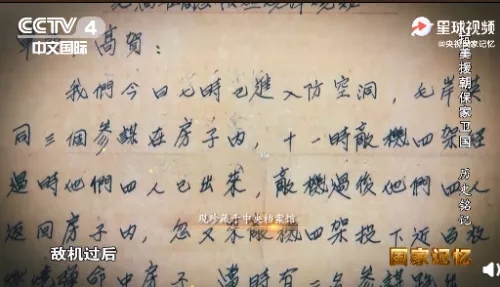 CCTV 4
中文国际
星球视频
@央视国家记忆
高賀:
我們今日七時已進入防空洞,毛岸英
同三個參謀在房子內,十一時敵機四架經
過時他們四人已出來,敵機過後他們四人
返回房子內,忽又來敵機四架投下近百枚
燒彈命中房子,當時有二名參謀跑出
现珍藏于中央档案馆
敌机过后
国家记忆
抗美援朝保家卫国 历史铭记